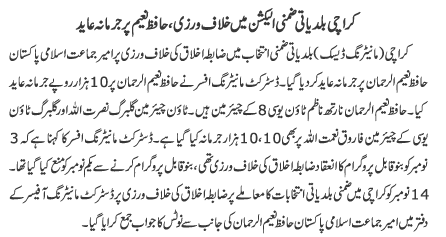 کراچی بلدیاتی ضمنی الیکشن میں خلاف ورزی، حافظ نعیم پر جرمانہ عاید
کراچی (مانیٹرنگ ڈیسک) بلدیاتی ضمنی انتخاب میں ضابطہ اخلاق کی خلاف ورزی پر امیر جماعت اسلامی پاکستان
حافظ نعیم الرحمان پر جرمانہ عاید کر دیا گیا۔ ڈسٹرکٹ مانیٹرنگ افسر نے حافظ نعیم الرحمان پر 10 ہزار روپے جرمانہ عاید
کیا۔ حافظ نعیم الرحمان نارتھ ناظم ٹاؤن یوسی 8 کے چیئرمین ہیں۔ ٹاؤن چیئرمین گلبرگ نصرت اللہ اور گلبرگ ٹاؤن
یوسی کے چیئرمین فاروق نعمت اللہ پر بھی 10،10 ہزار جرمانہ کیا گیا ہے۔ ڈسٹرکٹ مانیٹرنگ افسر کا کہنا ہے کہ 3
نومبر کو بنو قابل پروگرام کا انعقاد ضابطہ اخلاق کی خلاف ورزی تھی، بنو قابل پروگرام کرنے سے یکم نومبر کو منع کیا گیا تھا۔
14 نومبر کو کراچی میں ضمنی بلدیاتی انتخابات کا معاملے پر ضابطہ اخلاق کی خلاف ورزی پر ڈسٹرکٹ مانیٹرنگ آفیسر کے
دفتر میں امیر جماعت اسلامی پاکستان حافظ نعیم الرحمان کی جانب سے نوٹس کا جواب جمع کرایا گیا۔